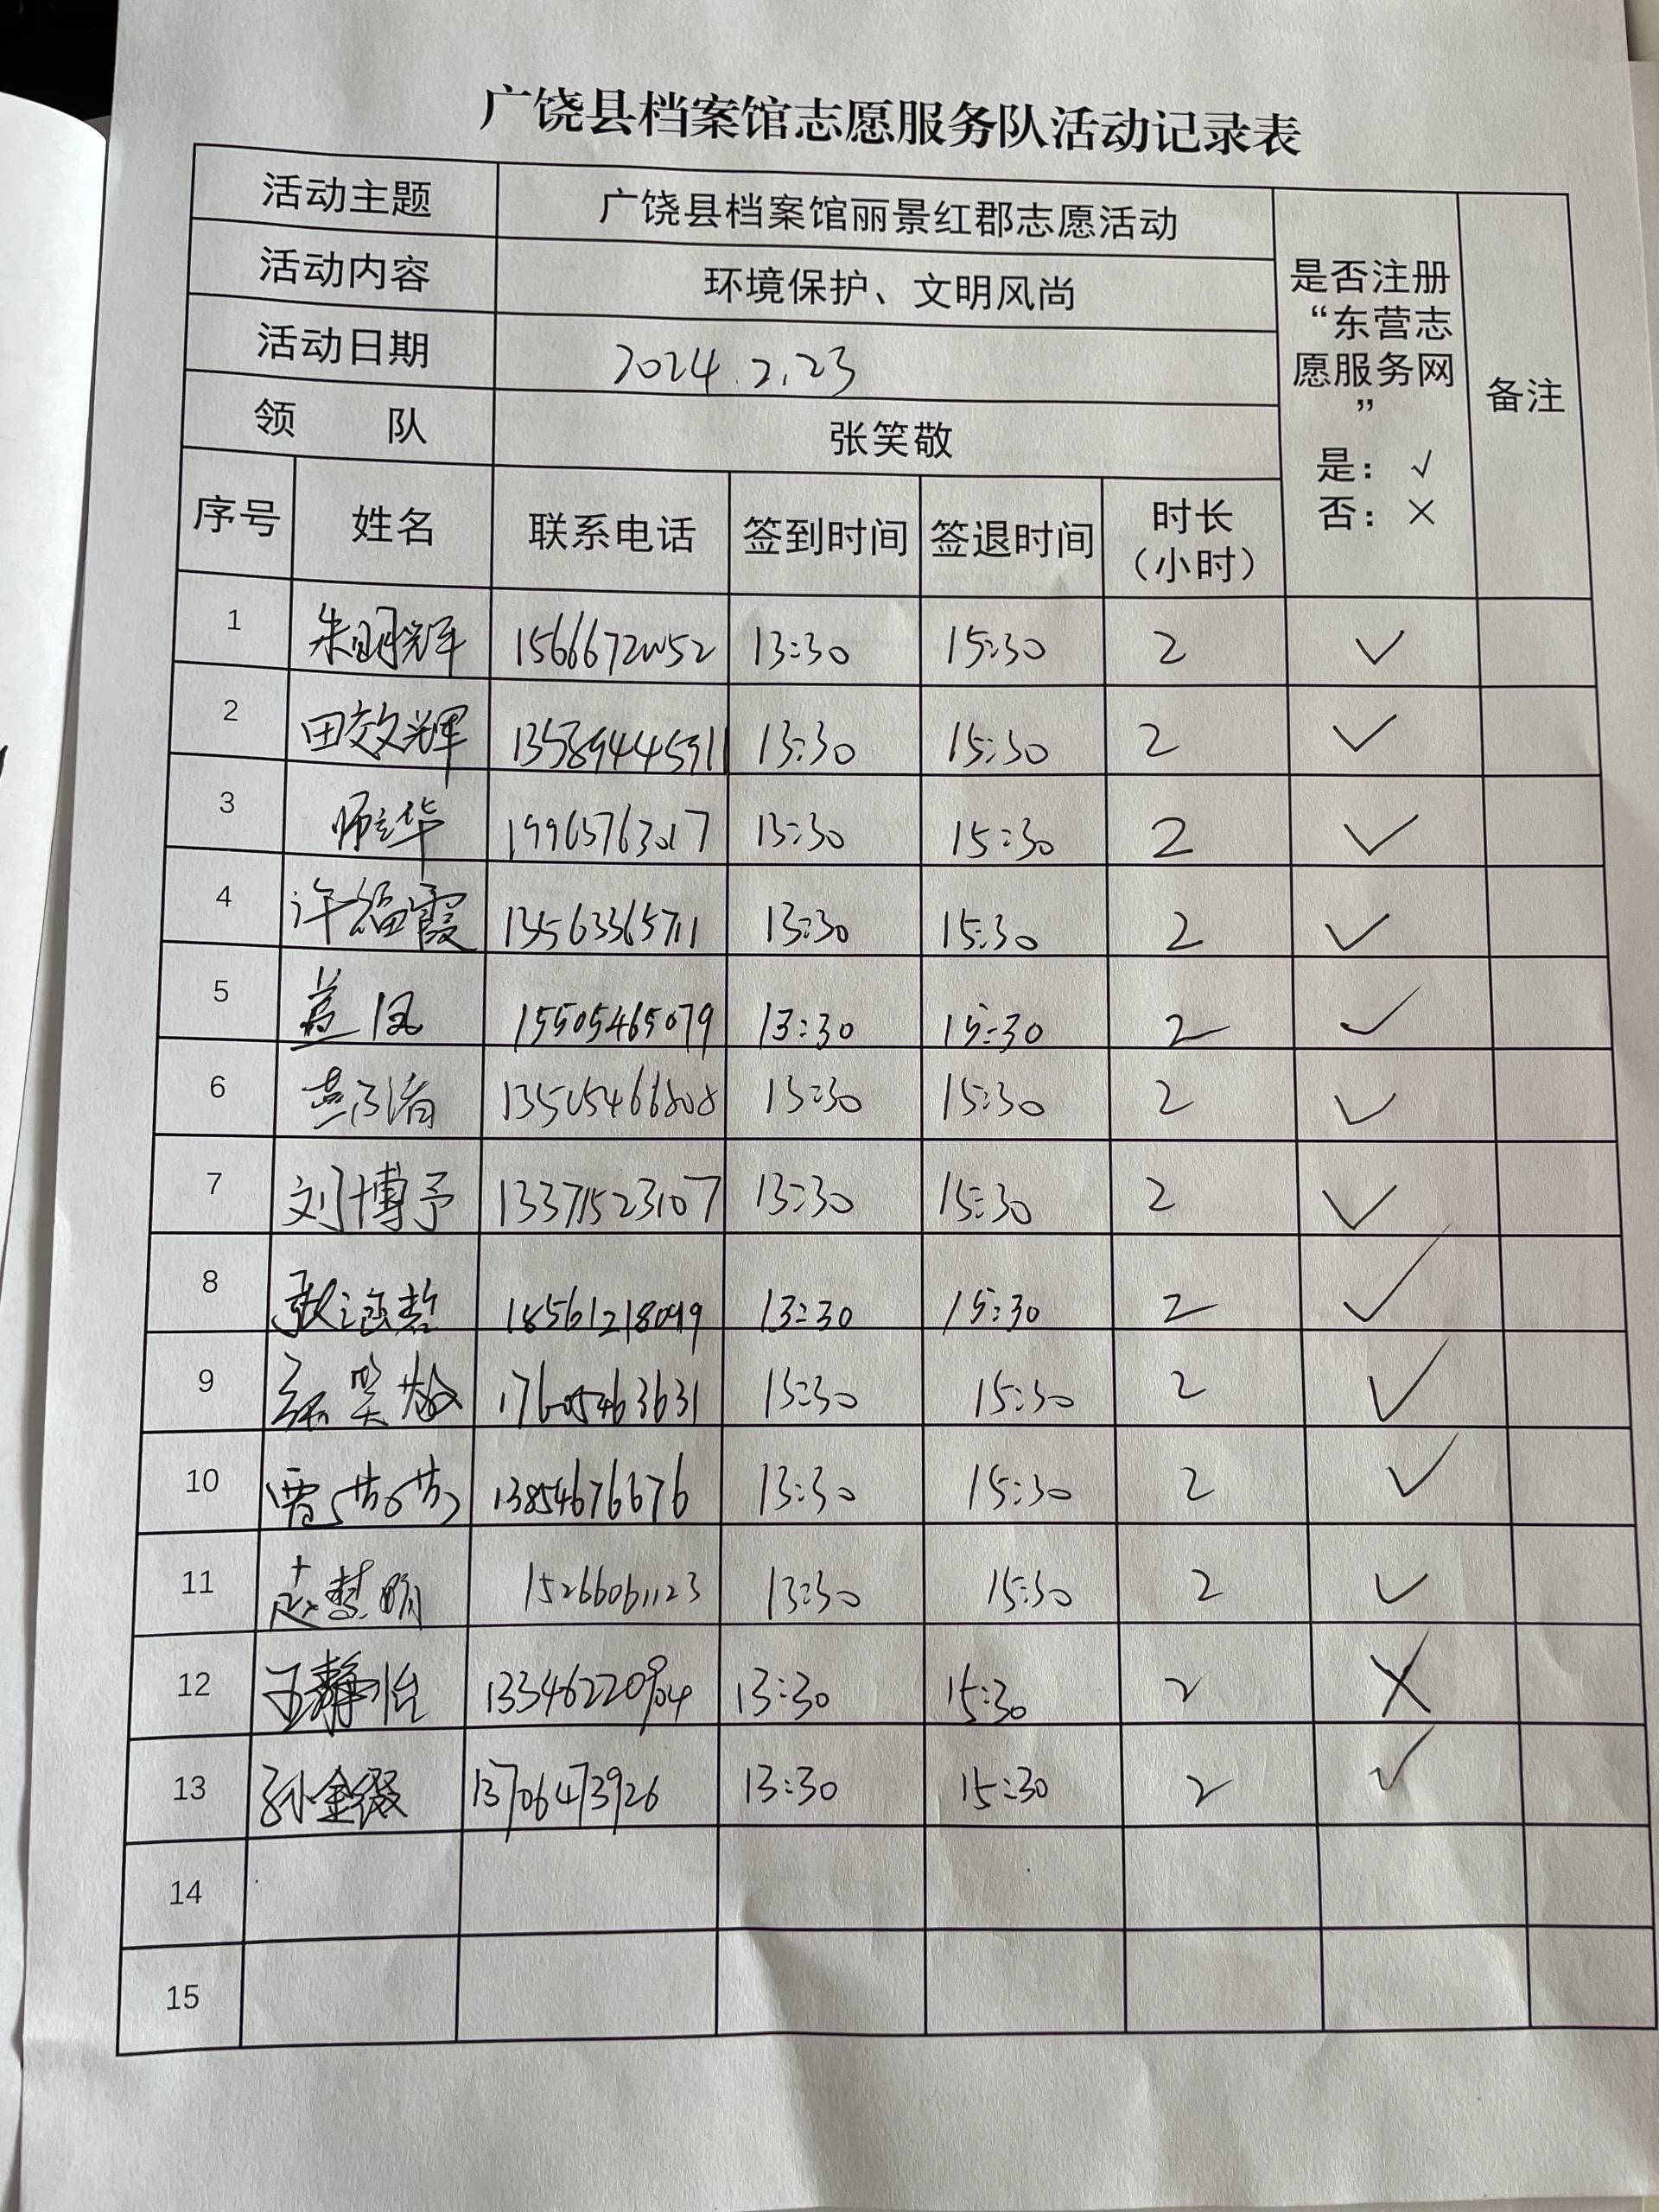 广饶县档案馆志愿服务队活动记录表
活动主题 广饶县档案馆丽景红郡志愿活动
活动内容 环境保护、文明风尚
活动日期 2024.2.23
领 队 张笑敬
是否注册
“东营志
愿服务网
”
是：√
否：×
备注
序号 姓名 联系电话 签到时间 签退时间 时长
（小时）
1 朱明辉 15666720052 13:30 15:30 2 √
2 田效辉 13589445911 13:30 15:30 2 √
3 19965763017 13:30 15:30 2 √
4 许福霞 13563365711 13:30 15:30 2 √
5 盖凤 15505465079 13:30 15:30 2 √
6 13505466808 13:30 15:30 2 √
7 刘博予 13371523107 13:30 15:30 2 √
8 18561218099 13:30 15:30 2 √
9 张笑敬 17605463631 13:30 15:30 2 √
10 贾茜茜 13854676676 13:30 15:30 2 √
11 15266061123 13:30 15:30 2 √
12 王静怡 13:30 15:30 2 ×
13 13706473926 13:30 15:30 2 √
14
15